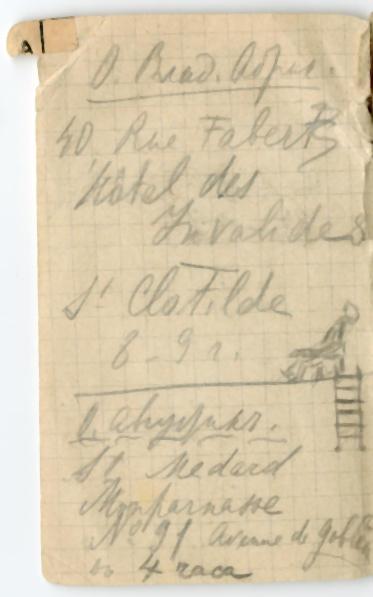 40 Rue Fabert
Hôtel des
Invalides
St Clotilde
8-9 г.
St Medard
Monparnasse
No 91 Avenue de Gobelin
4 часа